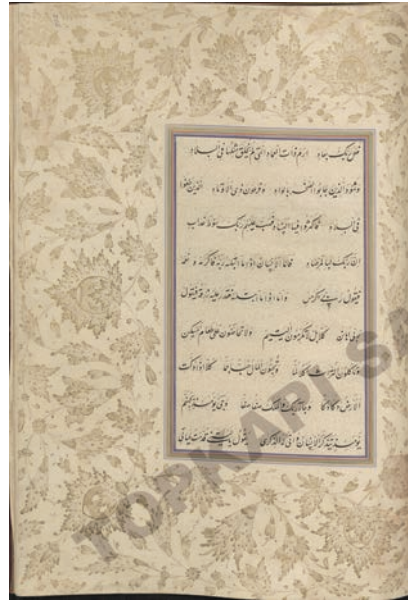 فعل ربك بعاد ارم ذات العماد التي لم يخلق مثلها في البلاد
وثمود الذين جابوا الصخر بالواد وفرعون ذي الاوتاد الذين طغوا
في البلاد فاكثروا فيها الفساد فصب عليهم ربك سوط عذاب
ان ربك لبالمرصاد فاما الانسان اذا ما ابتليه ربه فاكرمه و نعمه
فيقول ربي اكرمن واما اذا ما ابتليه فقدر عليه رزقه فيقول
ربي اهانن كلا بل لا تكرمون اليتيم ولا تحاضون على طعام المسكين
وتاكلون التراث اكلا لما وتحبون المال حبا جما كلا اذا دكت
الارض دكا دكا وجاء ربك والملك صفا صفا وجئ يومئذ بجهنم
يومئذ يتذكر الانسان وانى له الذكرى يقول يا ليتني قدمت لحياتي
TOPKAPI SA